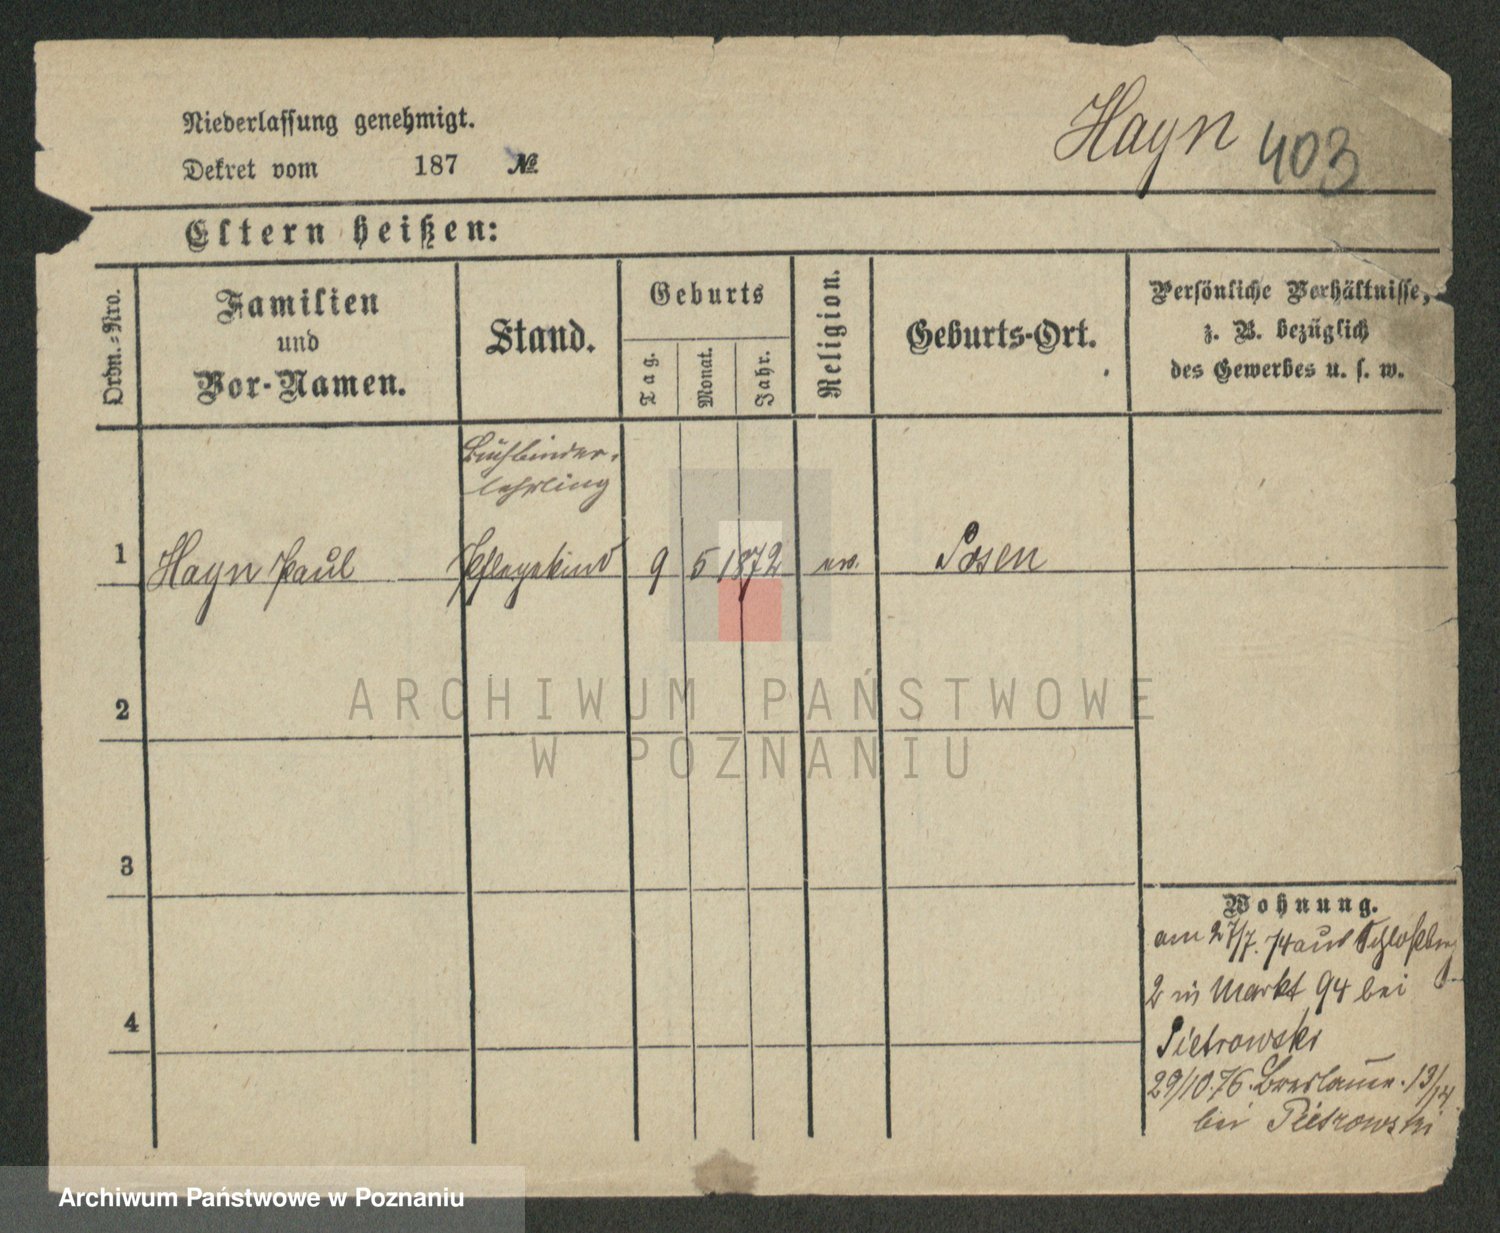 Niederlassung genehmigt.
Dekret vom 187 №
Hayn 403
Eltern heißen:
Ordn.-Nro.
Familien
und
Vor-Namen.
Stand.
Geburts
Tag.
Monat.
Jahr.
Religion.
Geburts-Ort.
Persönliche Verhältnisse,
z. B. bezüglich
des Gewerbes u. s. w.
Buchbinder-
lehrling
1 Hayn Paul Pflegekind 9 5 1872 ev. Posen
2
3
4
Wohnung.
am 27/7. 74 aus Schloßberg
2 in Markt 94 bei
Pietrowski
29/10.76. Breslauer. 13/14
bei Pietrowski
ARCHIWUM PAŃSTWOWE
W POZNANIU
Archiwum Państwowe w Poznaniu